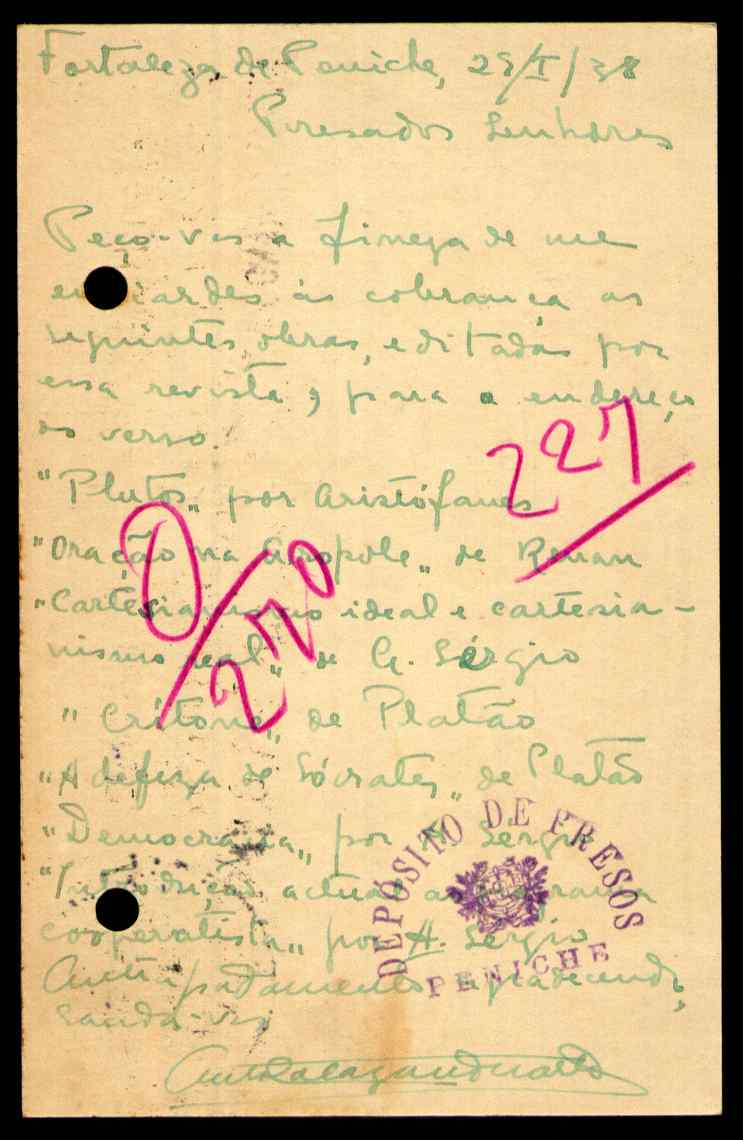 Fortaleza de Peniche, 29/I/38
Presados Senhores
Peço-vos a fineza de me
enviardes às cobrança as
seguintes obras, editadas por
essa revista, para o endereço
do verso.
"Plutos" por Aristófanes
227
"Oração na Acropole" de Renan
"Cartesianismo ideal e cartesia-
nismo real" de A. Sérgio
0/270
"Crítone" de Platão
"A defeza de Sócrates" de Platão
"Democracia" por A. Sergio
"Introdução actual ao programa
cooperatista" por A. Sergio
Antecipadamente agradecendo,
Saúda-vos
DEPÓSITO DE PRESOS
PENICHE